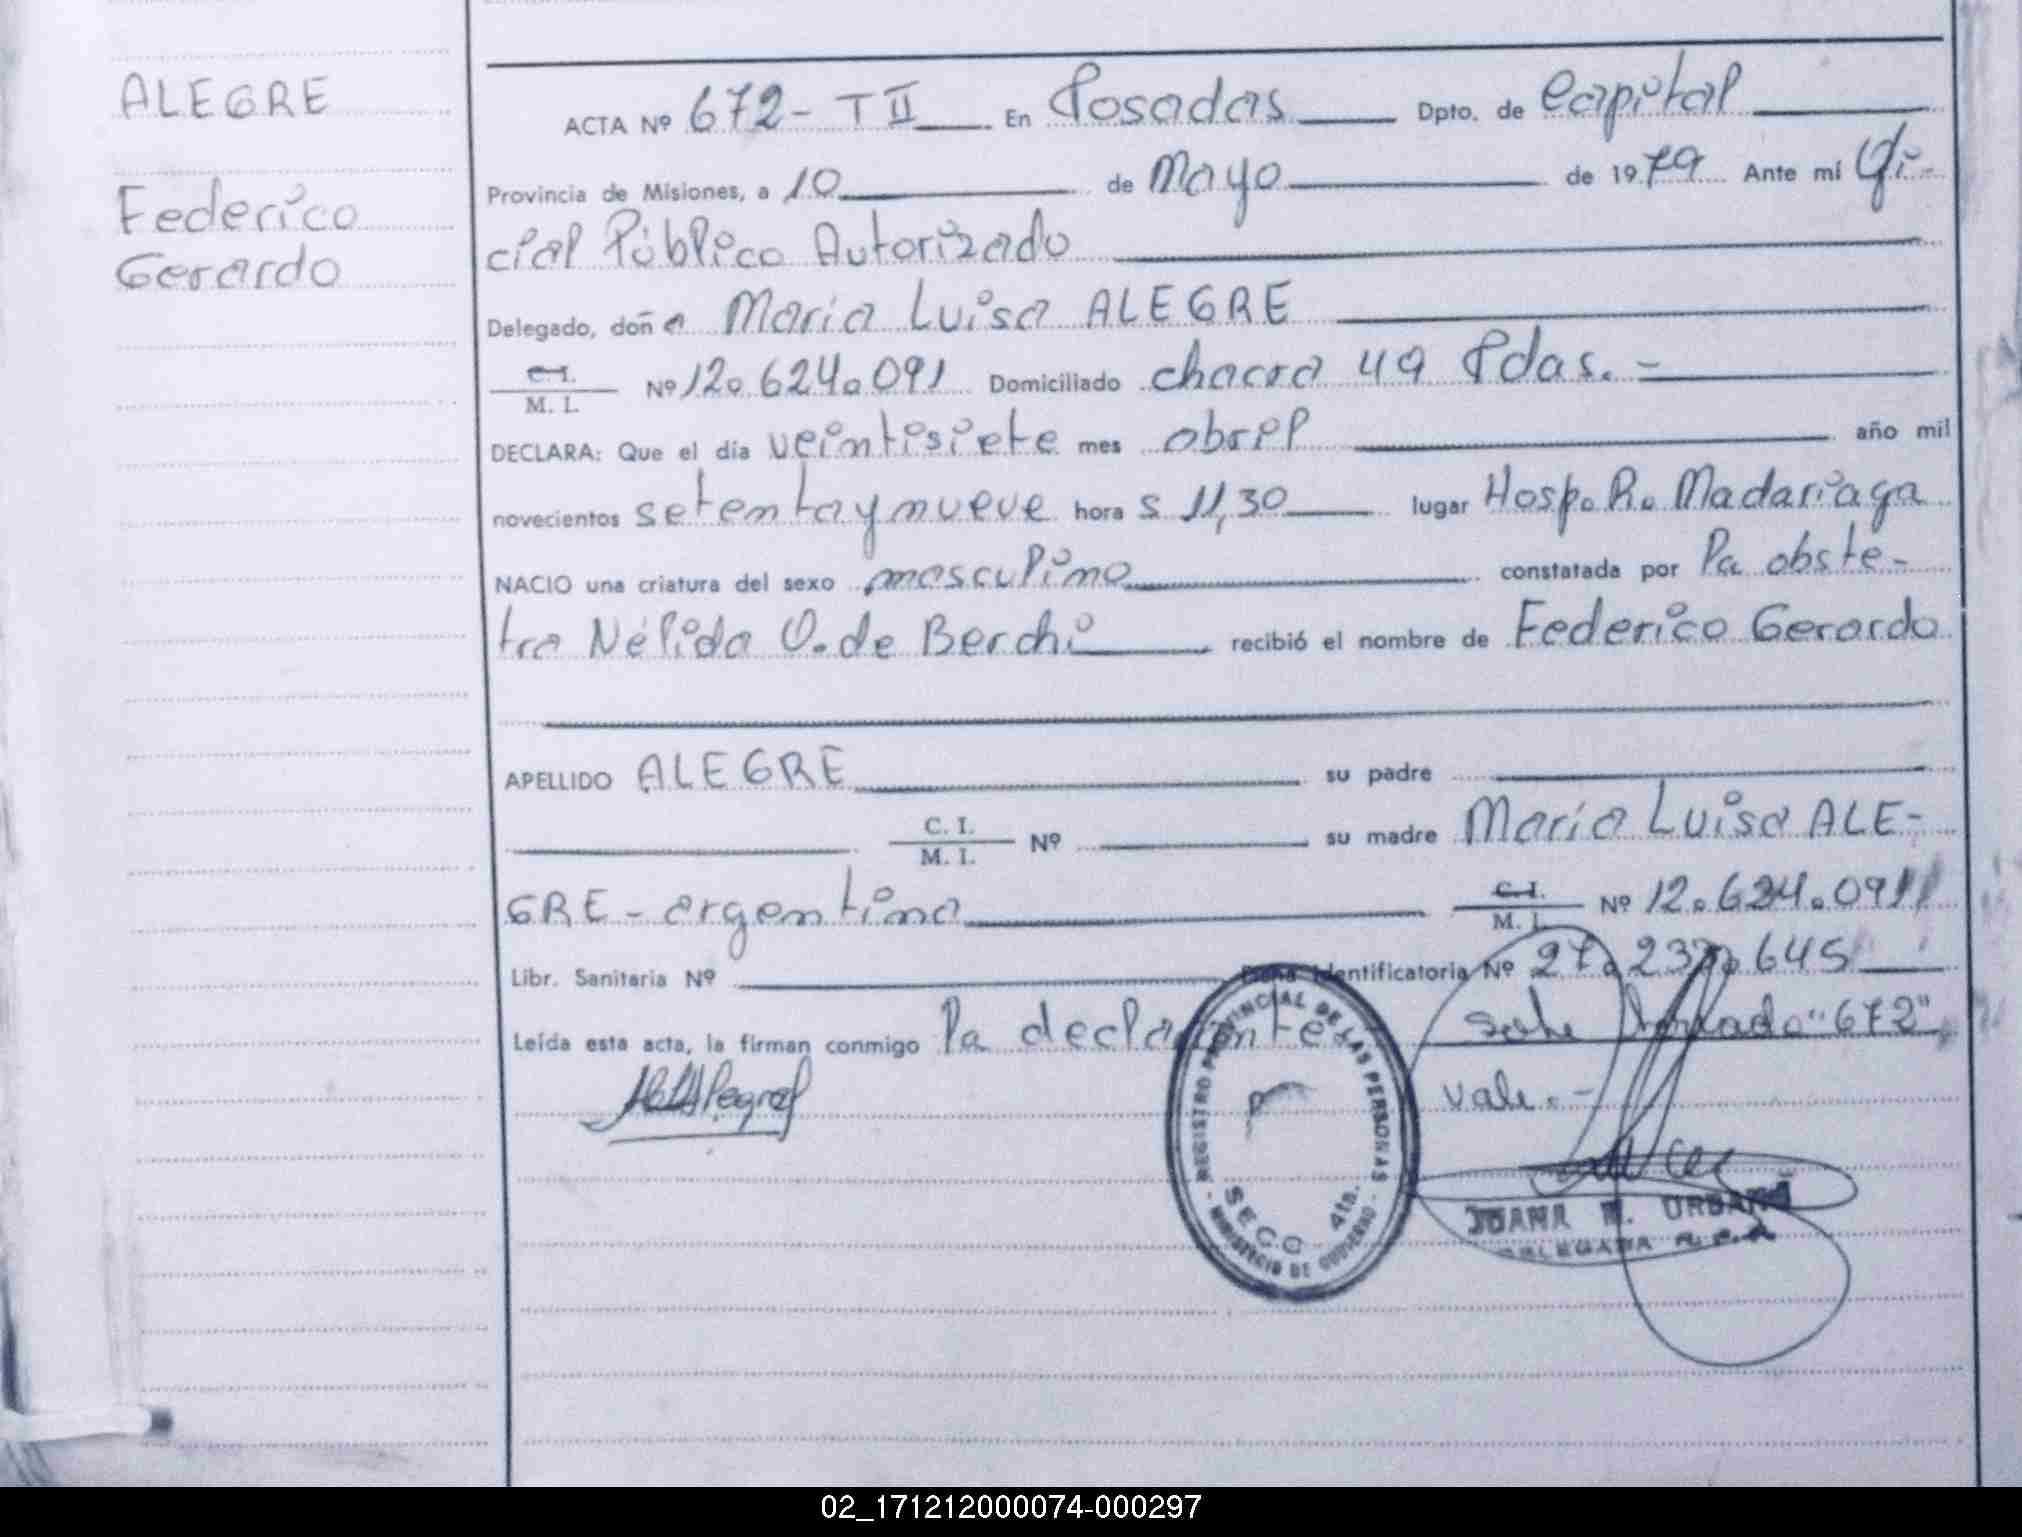 ALEGRE
Federico
Gerardo
ACTA Nº 672 - T II En Posadas Dpto. de Capital
Provincia de Misiones, a 10 de Mayo de 1979 Ante mí Ofi-
cial Público Autorizado
Delegado, doña Maria Luisa ALEGRE
C. I. / M. I. Nº 12.624.091 Domiciliado chacra 49 Pdas. -
DECLARA: Que el día veintisiete mes abril año mil
novecientos setenta y nueve hora s 11,30 lugar Hosp. R. Madariaga
NACIO una criatura del sexo masculino constatada por la obste-
tra Nélida O. de Berchi recibió el nombre de Federico Gerardo
APELLIDO ALEGRE su padre
C. I. / M. I. Nº su madre María Luisa ALE-
GRE - argentina C. I. / M. I. Nº 12.624.091
Libr. Sanitaria Nº Ficha Identificatoria Nº 27.237.645
Leída esta acta, la firman conmigo la declarante
"672"
vale. -
REGISTRO PROVINCIAL DE LAS PERSONAS
SECC. 4ta.
- MINISTERIO DE GOBIERNO -
JUANA M. URBANO
DELEGADA
02_171212000074-000297